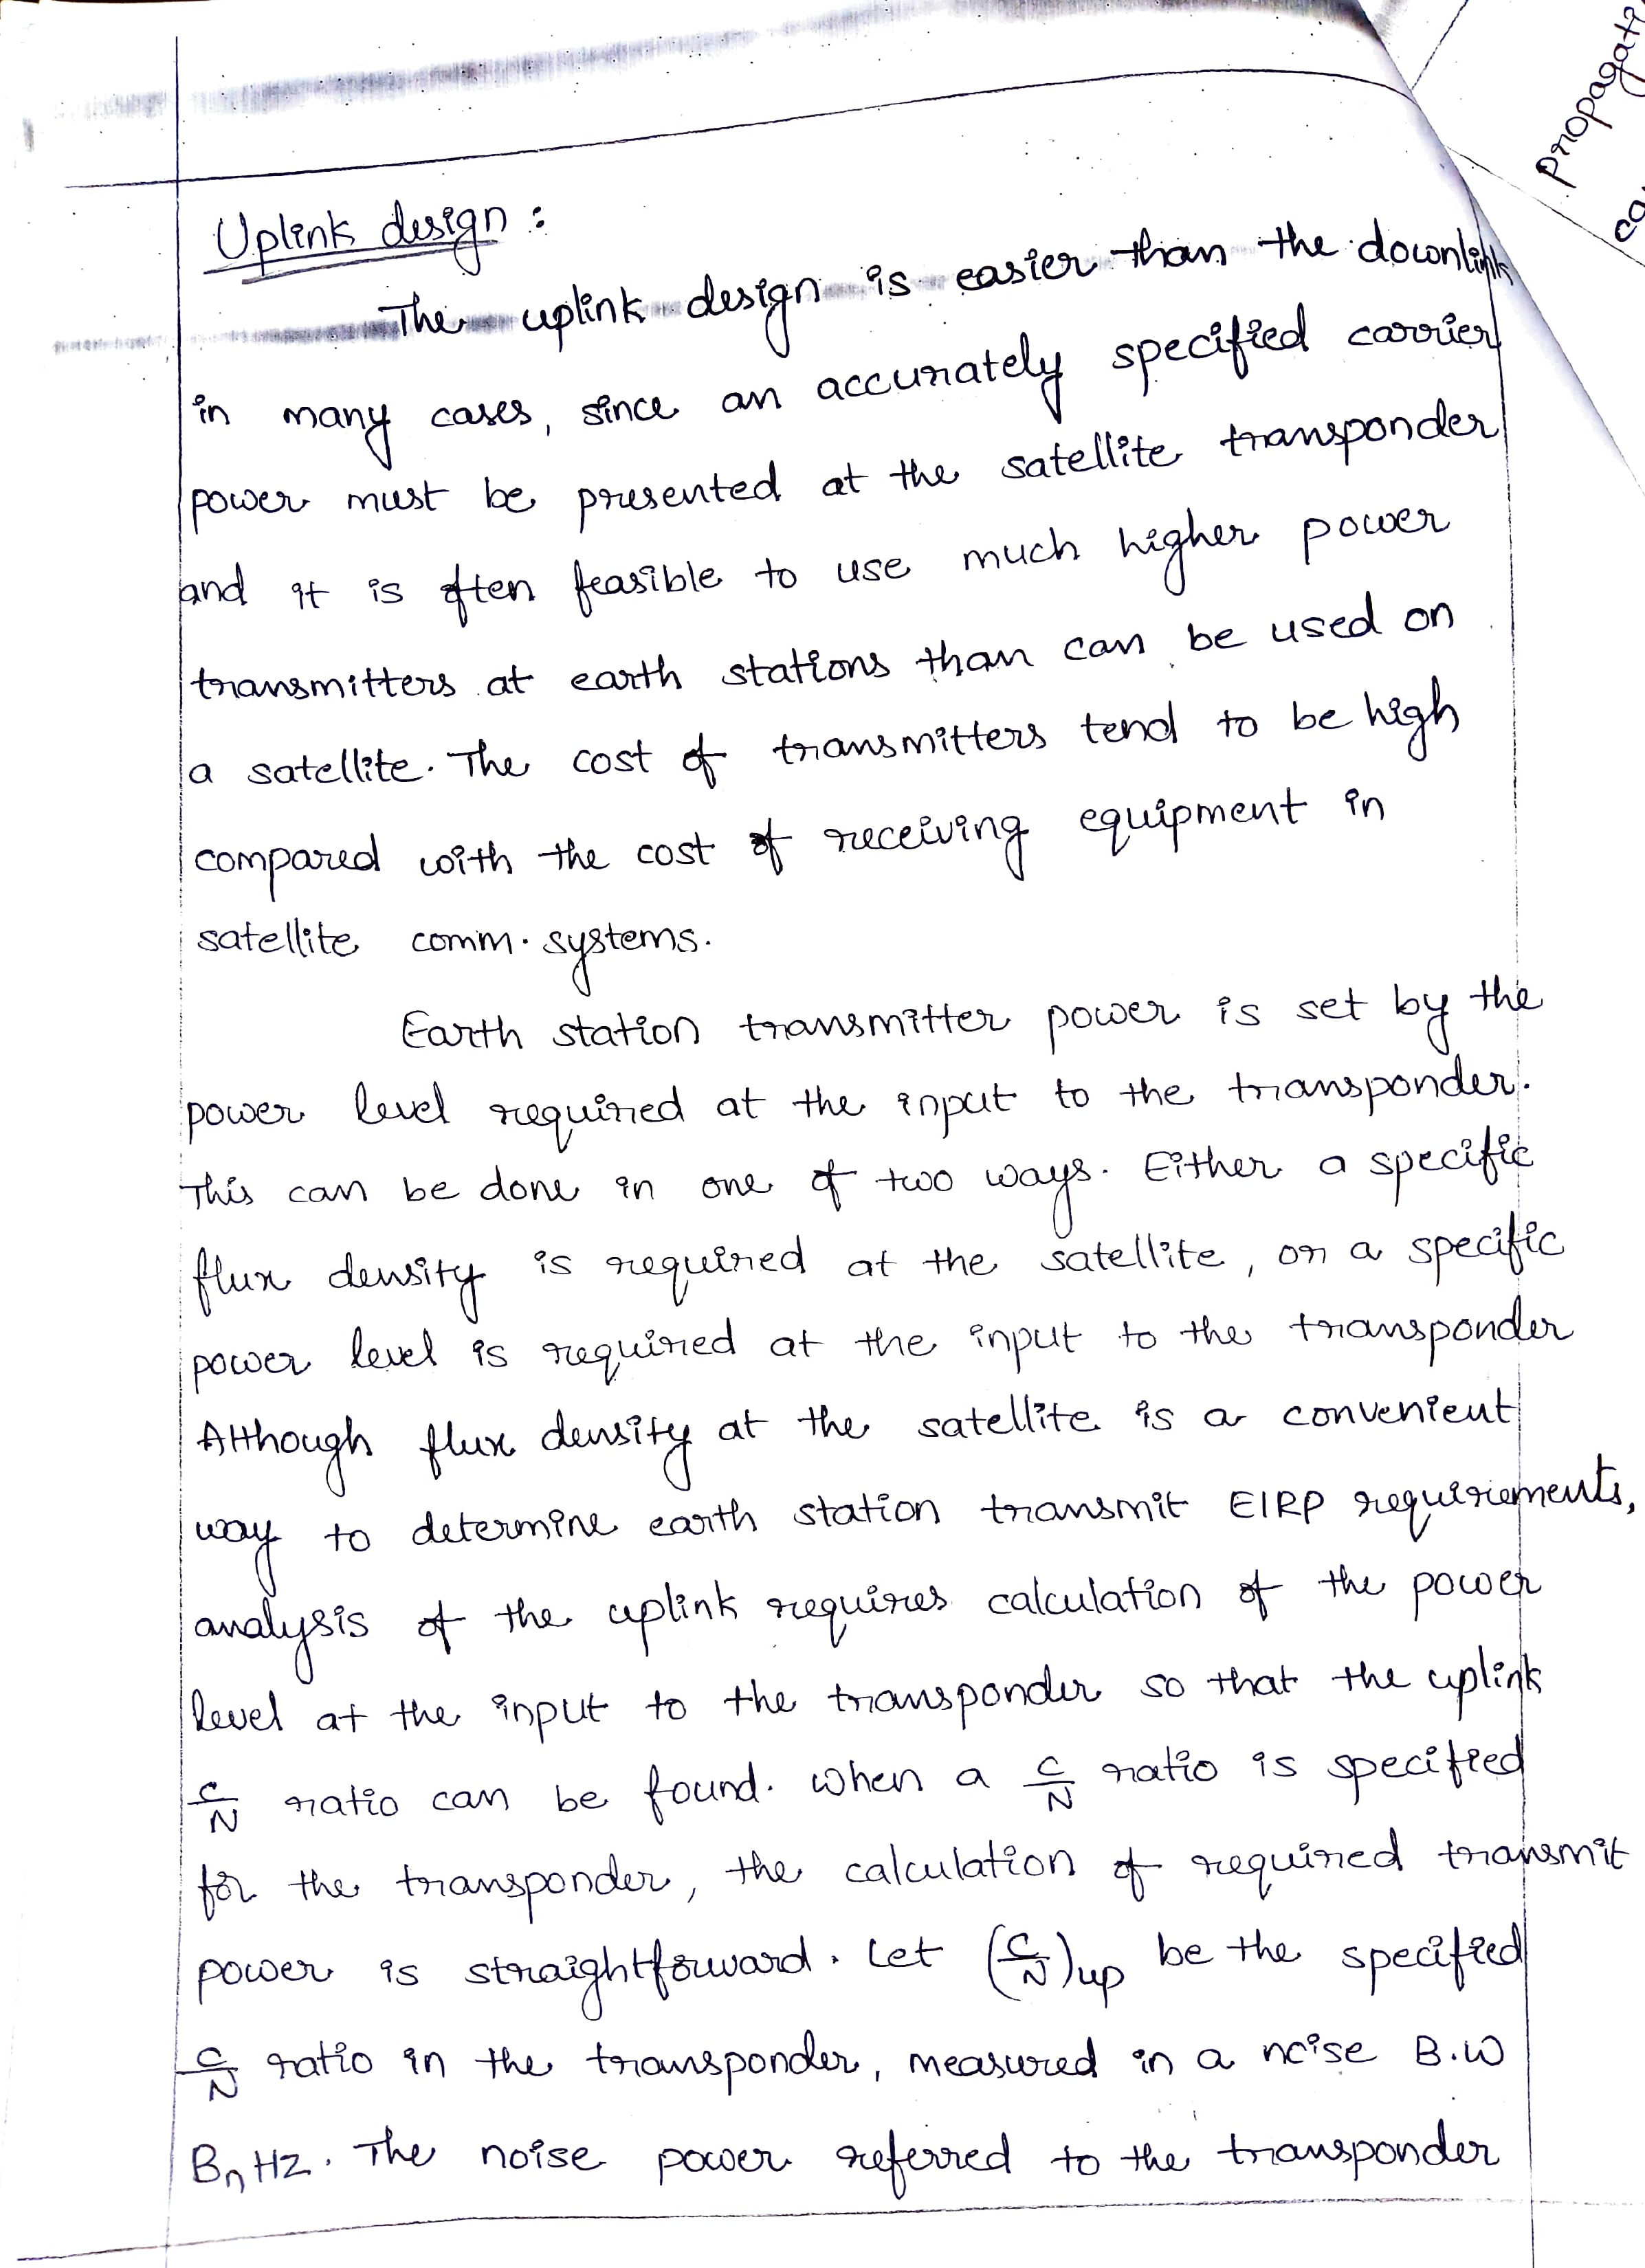 Uplink design :
The uplink design is easier than the downlink
in many cases, since an accurately specified carrier
power must be presented at the satellite transponder
and it is often feasible to use much higher power
transmitters at earth stations than can be used on
a satellite. The cost of transmitters tend to be high
compared with the cost of receiving equipment in
satellite comm. systems.
Earth station transmitter power is set by the
power level required at the input to the transponder.
This can be done in one of two ways. Either a specific
flux density is required at the satellite, or a specific
power level is required at the input to the transponder
Although flux density at the satellite is a convenient
way to determine earth station transmit EIRP requirements,
analysis of the uplink requires calculation of the power
level at the input to the transponder so that the uplink
C/N ratio can be found. When a C/N ratio is specified
for the transponder, the calculation of required transmit
power is straightforward. Let (C/N)up be the specified
C/N ratio in the transponder, measured in a noise B.W
Bn HZ. The noise power referred to the transponder